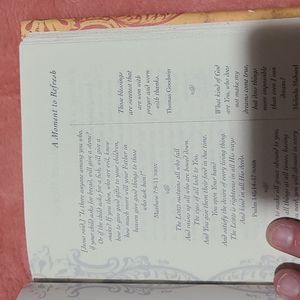 A Moment to Refresh
[Jesus said,] "Is there anyone among you who,
if your child asks for bread, will give a stone?
Or if the child asks for a fish, will give a
snake? If you then, who are evil, know
how to give good gifts to your children,
how much more will your Father in
heaven give good things to those
who ask him!"
Matthew 7:9-11 NRSV
The LORD sustains all who fall
And raises up all who are bowed down.
The eyes of all look to You,
And You give them their food in due time.
You open Your hand
And satisfy the desire of every living thing.
The LORD is righteous in all His ways
And kind in all His deeds.
Psalm 145:14-17 NASB
to make all grace abound to you,
at all times, having
Those blessings
are sweetest that
are won with
prayer and worn
with thanks.
Thomas Goodwin
What kind of God
are You, who does
not make my
dreams come true,
but does things
more impossible
than even I can
dream?